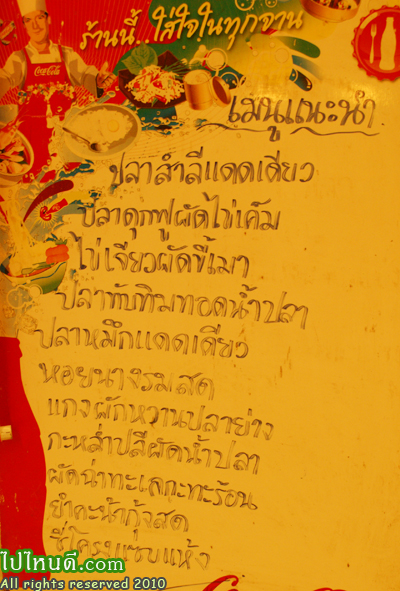 ร้านนี้..ใส่ใจในทุกจาน
Coca-Cola
เมนูแนะนำ
ปลาสำลีแดดเดียว
ปลาดุกฟูผัดไข่เค็ม
ไข่เจียวผัดขี้เมา
ปลาทับทิมทอดน้ำปลา
ปลาหมึกแดดเดียว
หอยนางรมสด
แกงผักหวานปลาย่าง
กะหล่ำปลีผัดน้ำปลา
ผัดฉ่าทะเลกะทะร้อน
ยำคะน้ากุ้งสด
ซี่โครงแซบแห้ง
ไปไหนดี.com
All rights reserved 2010